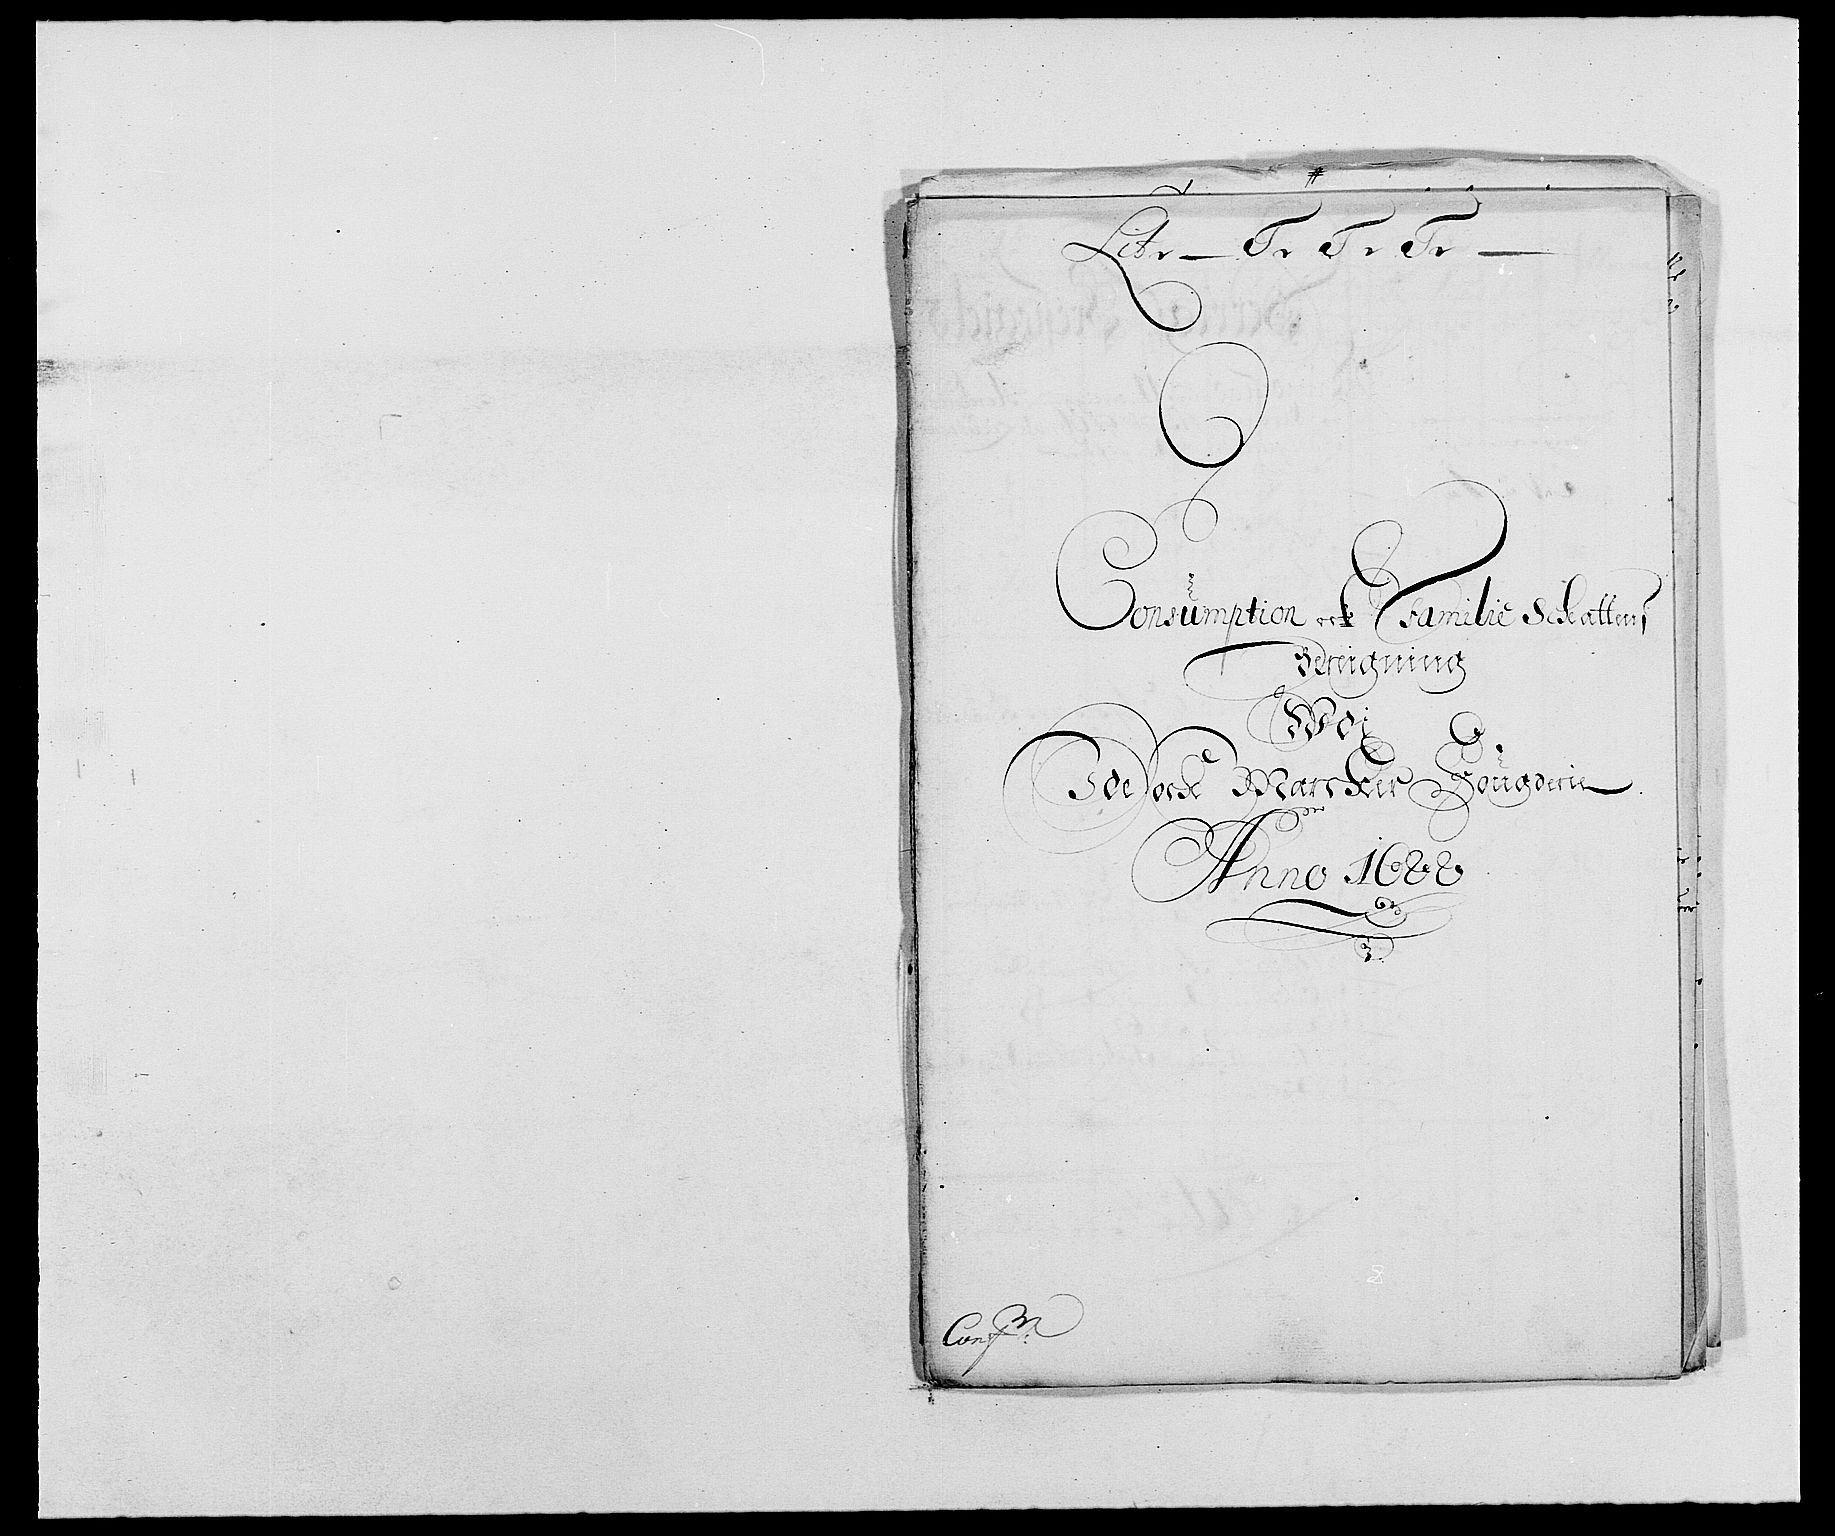 Litr — Tr Tr Tr —
Consumption och Familie Schattens
Bereigning
Wdi
Ide och Marcher Fougderie
Anno 1688
Conf